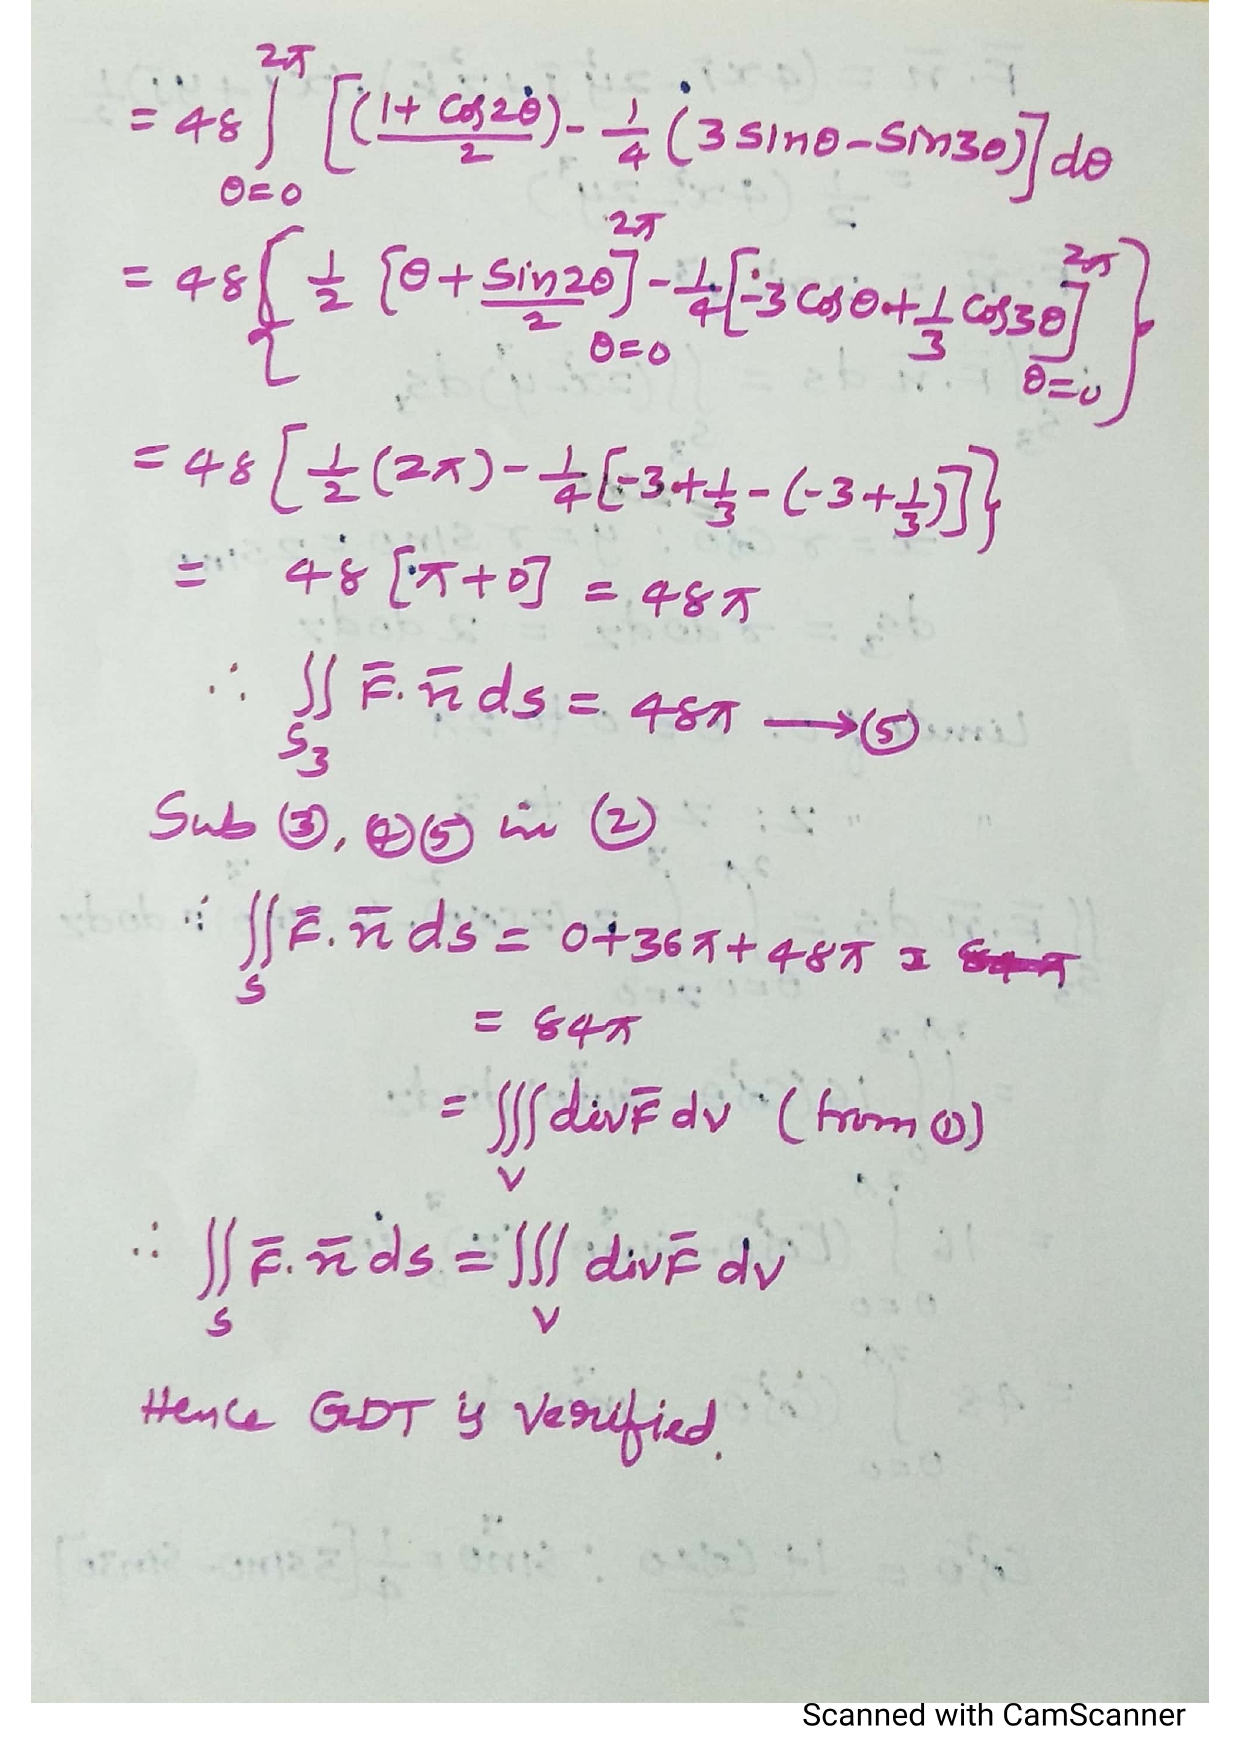 = 48 ∫_{θ=0}^{2π} [(1+cos2θ)/2 - 1/4 (3sinθ - sin3θ)] dθ
= 48 { 1/2 [θ + sin2θ/2]_{θ=0}^{2π} - 1/4 [-3cosθ + 1/3 cos3θ]_{θ=0}^{2π} }
= 48 [ 1/2 (2π) - 1/4 [-3 + 1/3 - (-3 + 1/3)] }
= 48 [π + 0] = 48π
∴ ∬_{S₃} F̄. n̄ ds = 48π ⟶ ⑤
Sub ③, ④ ⑤ in ②
∵ ∬_S F̄. n̄ ds = 0 + 36π + 48π =
= 84π
= ∭_V div F̄ dv (from ①)
∴ ∬_S F̄. n̄ ds = ∭_V div F̄ dv
Hence GDT is verified.
Scanned with CamScanner